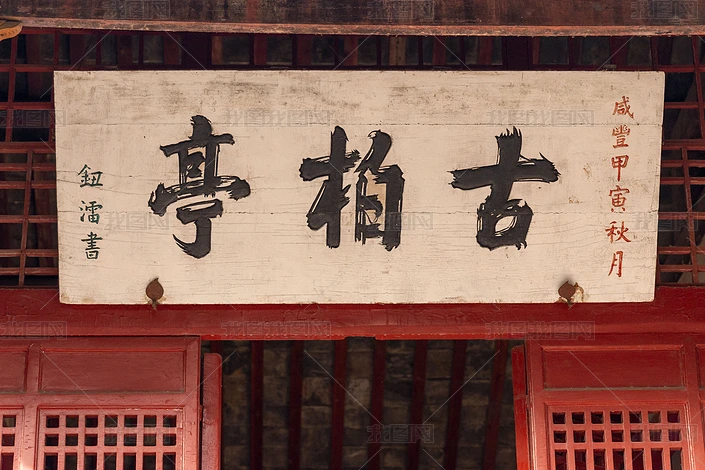 咸豐甲寅秋月
古柏亭
鈕書